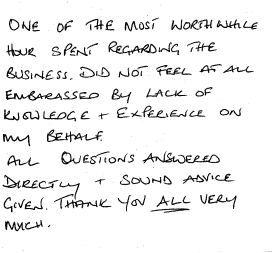 ONE OF THE MOST WORTHWHILE
HOUR SPENT REGARDING THE
BUSINESS. DID NOT FEEL AT ALL
EMBARASSED BY LACK OF
KNOWLEDGE + EXPERIENCE ON
MY BEHALF.
ALL QUESTIONS ANSWERED
DIRECTLY + SOUND ADVICE
GIVEN. THANK YOU ALL VERY
MUCH.